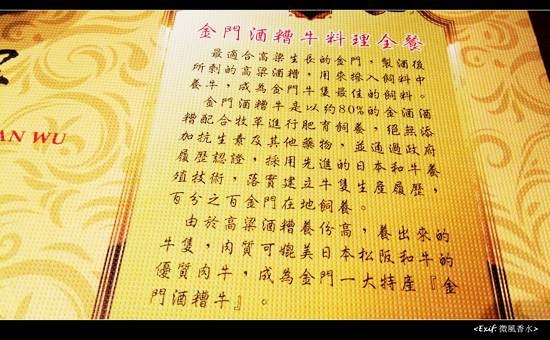 金門酒糟牛料理全餐
最適合高梁生長的金門，製酒後
所剩的高梁酒糟，用來摻入飼料中
養牛，成為金門牛隻最佳的飼料。
金門酒糟牛是以約80%的金酒酒
糟配合牧草進行肥育飼養，絕無添
加抗生素及其他藥物，並通過政府
履歷認證，採用先進的日本和牛養
殖技術，落實建立牛隻生產履歷，
百分之百金門在地飼養。
由於高梁酒糟養份高，養出來的
牛隻，肉質可媲美日本松阪和牛的
優質肉牛，成為金門一大特產『金
門酒糟牛』。
AN WU
<Exif: 微風香水>